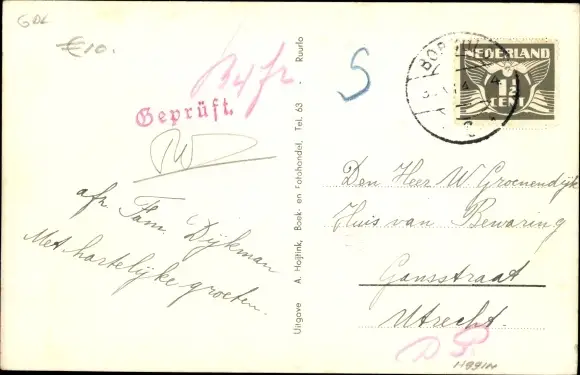 €10.
Geprüft.
S
afz. Fam. Dijkman
Met hartelijke groeten.
Uitgave A. Hojtink, Boek- en Fotohandel, Tel. 63 - Ruurlo
NEDERLAND
1½
CENT
Den Heer W. Groenendijk
Huis van Bewaring
Gansstraat
Utrecht.